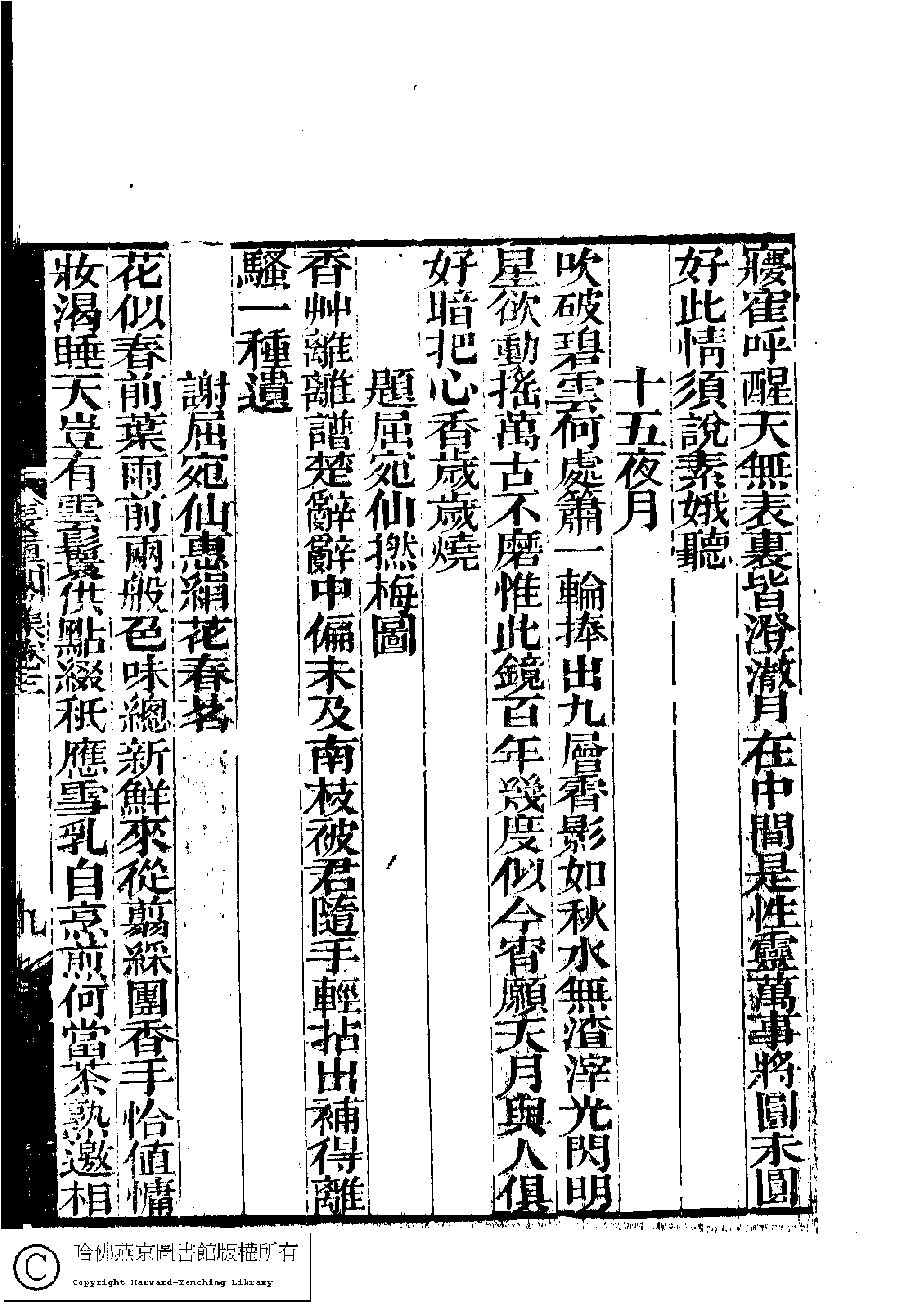 寢雀呼醒天無表裏皆澄澈月在中間是性靈萬事將圓未圓
好此情須說素娥聽
十五夜月
吹破碧雲何處簫一輪捧出九層霄影如秋水無渣滓光閃明
星欲動搖萬古不磨惟此鏡百年幾度似今宵願天月與人俱
好暗把心香歲歲燒
題屈宛仙撚梅圖
香艸離離譜楚辭辭中偏未及南枝被君隨手輕拈出補得離
騷一種遺
謝屈宛仙惠絹花春茗
花似春前葉雨前兩般色味總新鮮來從翦綵團香手恰值慵
妝渴睡天豈有雲鬟供點綴秖應雪乳自烹煎何當茶熟邀相
集卷三
九
哈佛燕京圖書館版權所有
Copyright Harvard-Yenching Library